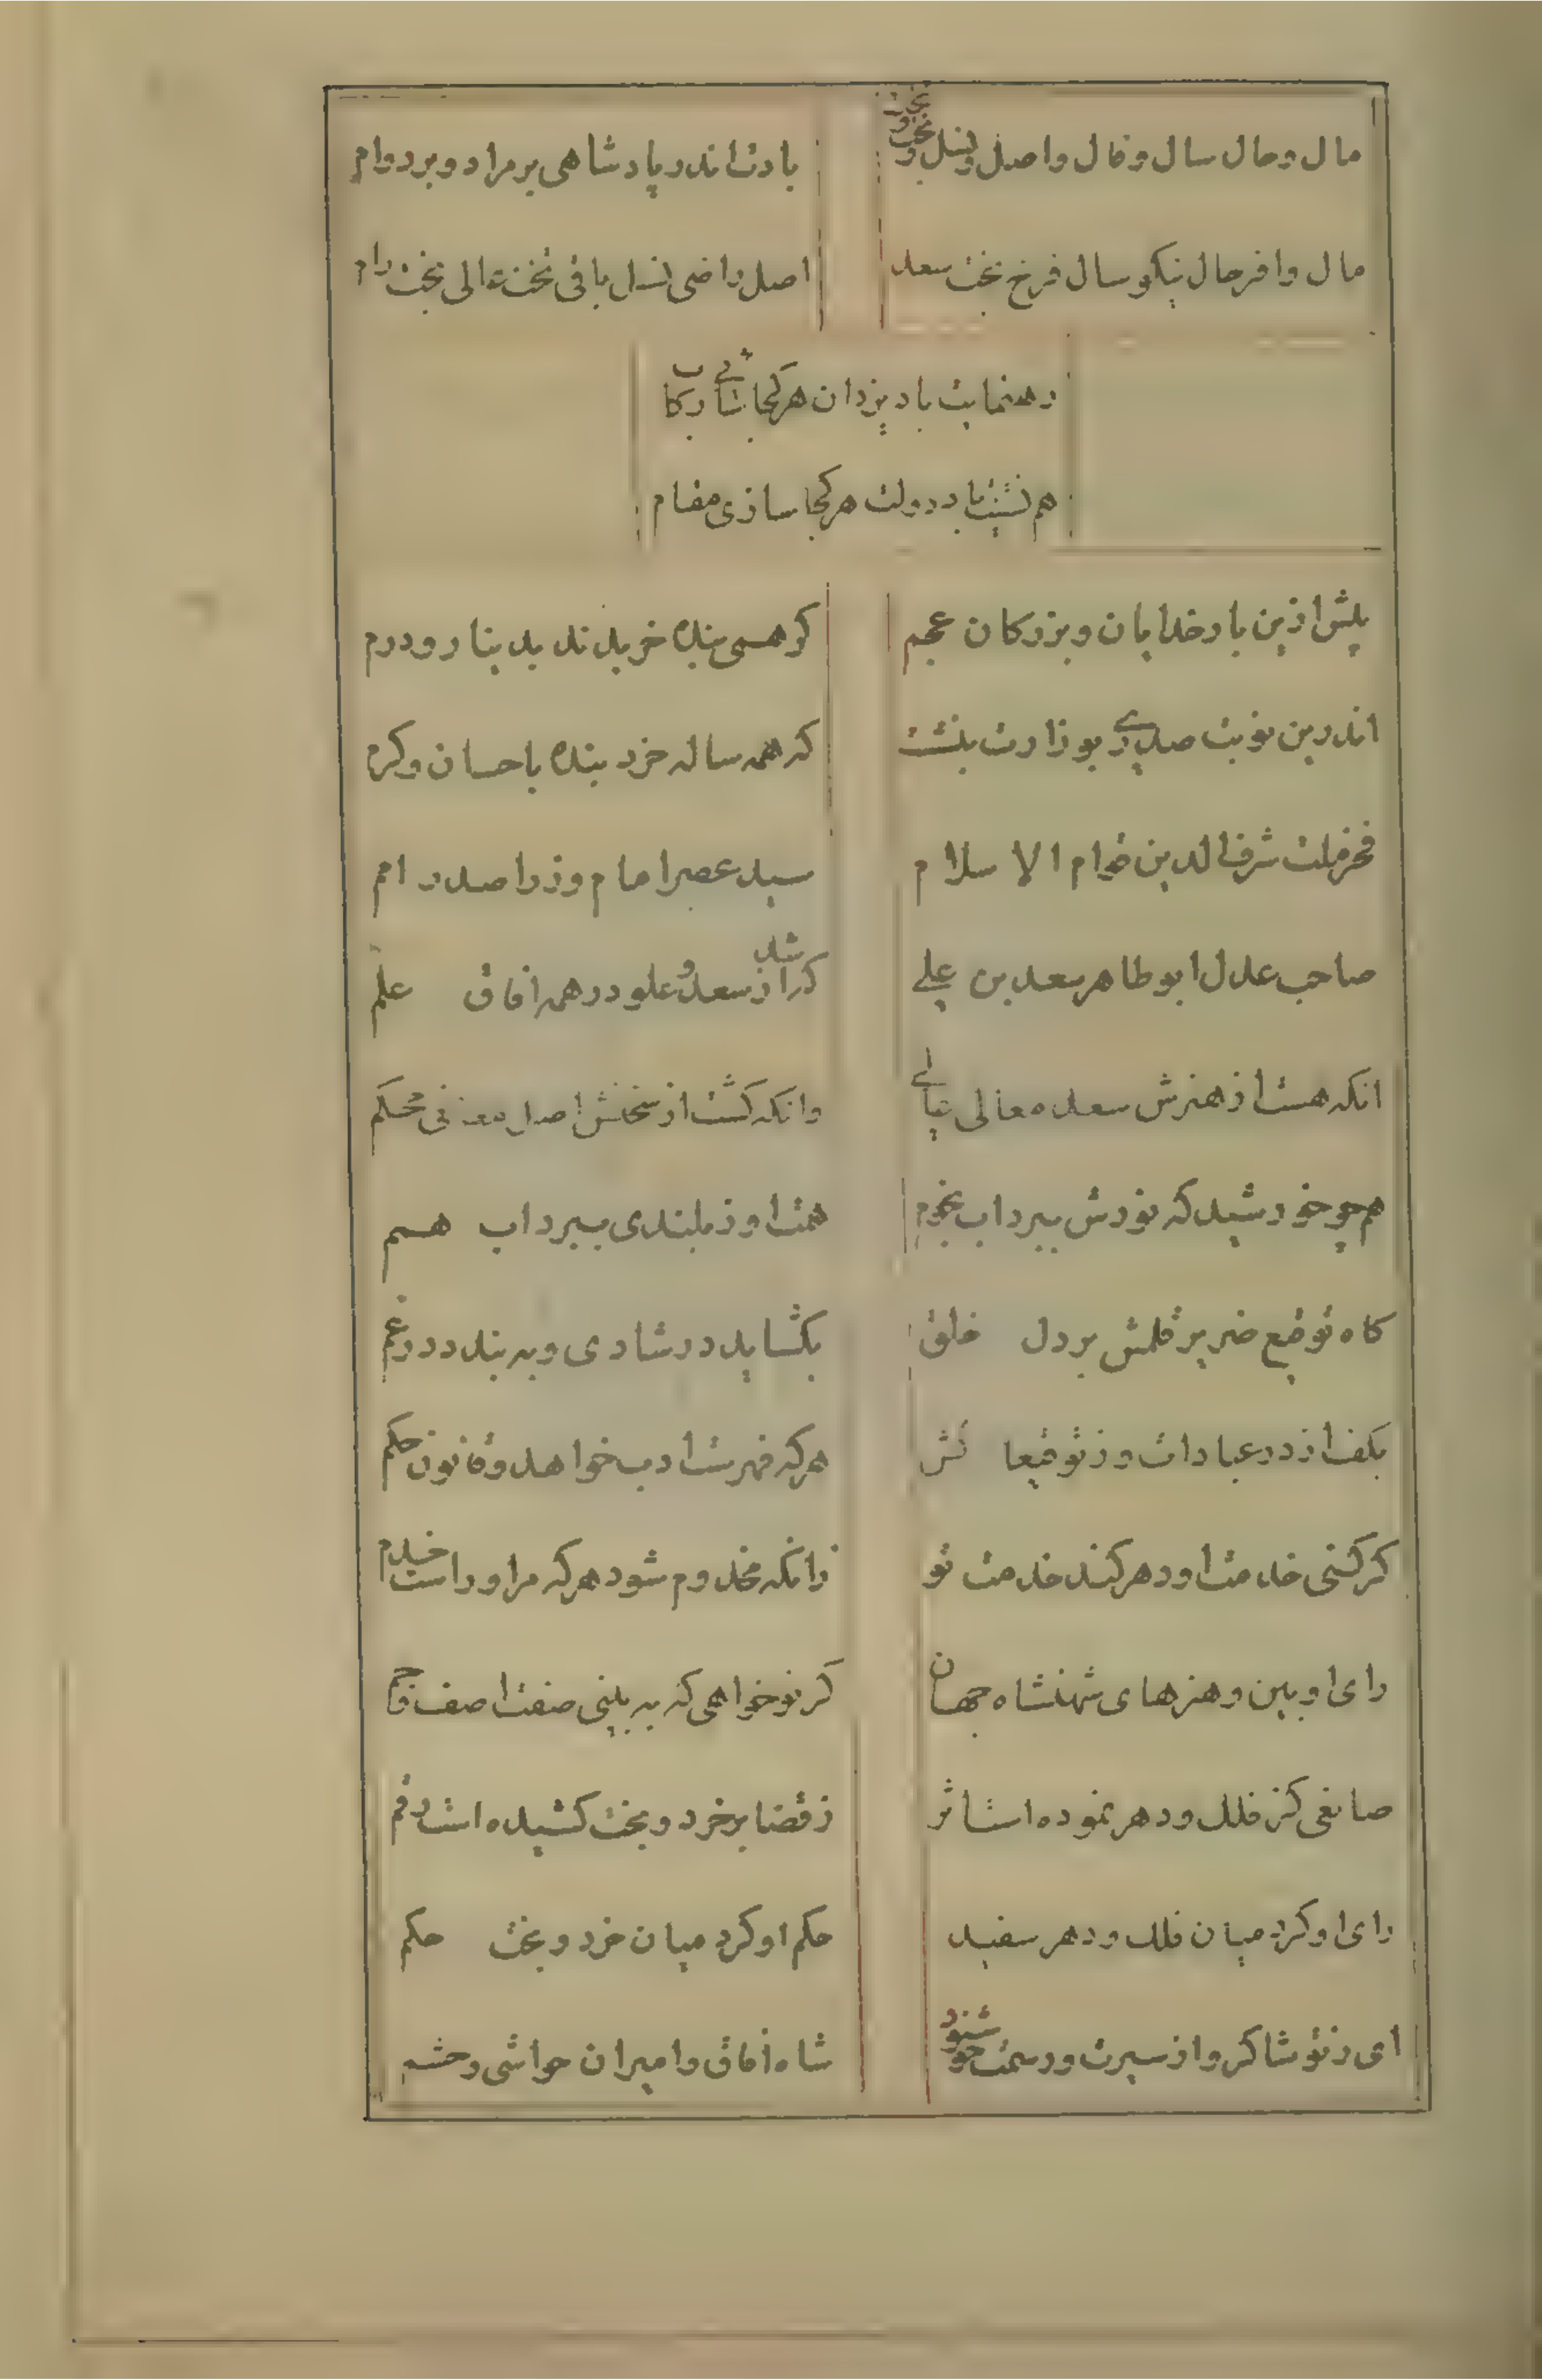 مال و حال سال و فال و اصل و نسل و تخت و بخت
بادت اندر پادشاهی بر مراد و بر دوام
مال وافر حال نیکو سال فرخ بخت سعد
اصل راضی نسل باقی تخت عالی بخت رام
رهنمایت باد یزدان هر کجا شائی رکاب
هم نشینت باد دولت هر کجا سازی مقام
پیش ازین بار خدایان و بزرکان عجم
کر همی بنده خریدند بدینار و درم
اندرین نوبت صدری بوزارت بنشست
که همه ساله خرد بنده باحسان و کرم
فخر ملت شرف الدین قوام الاسلام
سید عصر امام وزرا صدر امم
صاحب عدل ابو طاهر سعد بن علی
که را از سعد و علو در همه افاق شد علم
انکه هست از هنرش سعد معالی
وانکه کشت از سخنش اصل معنی محکم
همچو خورشید که نورش ببرد اب نجوم
همت او ز بلندی ببرد اب همم
کاه توقیع ضریر قلمش بر دل خلق
بکشاید در شادی و به بندد در غم
بکف ارد ز عبارات و ز توقیعاتش
هر که فهرست ادب خواهد و قانون حکم
کر کنی خدمت او دهر کند خدمت تو
زانکه مخدوم شود هر که مر او راست خدم
رای او بین و هنرهای شهنشاه جهان
کر تو خواهی که به بینی صفت اصف و جم
صانعی کز فلک و دهر نموده است اثر
ز قضا بر خرد و بخت کشیده است رقم
رای او کرد میان فلک و دهر سفید
حکم او کرد میان خرد و بخت حکم
ای ز تو شاکر و از سیرت و رسمت خوشنود
شاه افاق و امیران حواشی و حشم